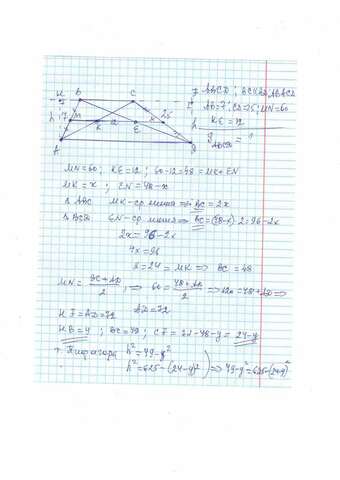 H B C
ABCD; BC||AD, ABCD
h 7 M 25
AB=7; CD=25; MN=60
K E
KE=12
A D
S ABCD = ?
MN=60; KE=12; 60-12=48=MK+EN
MK=x; EN=48-x
Δ ABC MK-ср. линия => BC=2x
Δ BCD EN-ср линия => BC=(48-x)·2=96-2x
2x=96-2x
4x=96
x=24=MK => BC=48
MN=(BC+AD)/2; => 60=(48+AD)/2 => 120=48+AD =>
HF=AD=72 AD=72
HB=y; BC=48; CF=72-48-y=24-y
т. Пифагора h²=49-y²
h²=625-(24-y)² => 49-y²=625-(24-y)²